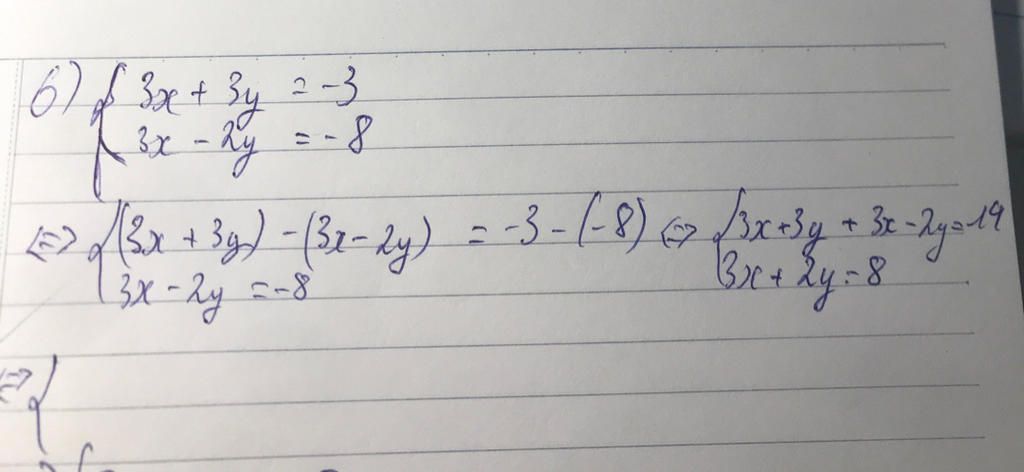 6) { 3x + 3y = -3
3x - 2y = - 8
⇔ { (3x + 3y) - (3x - 2y) = -3 - (-8) ⇔ { 3x + 3y + 3x - 2y = 19
3x - 2y = -8 3x + 2y = 8
⇔ {